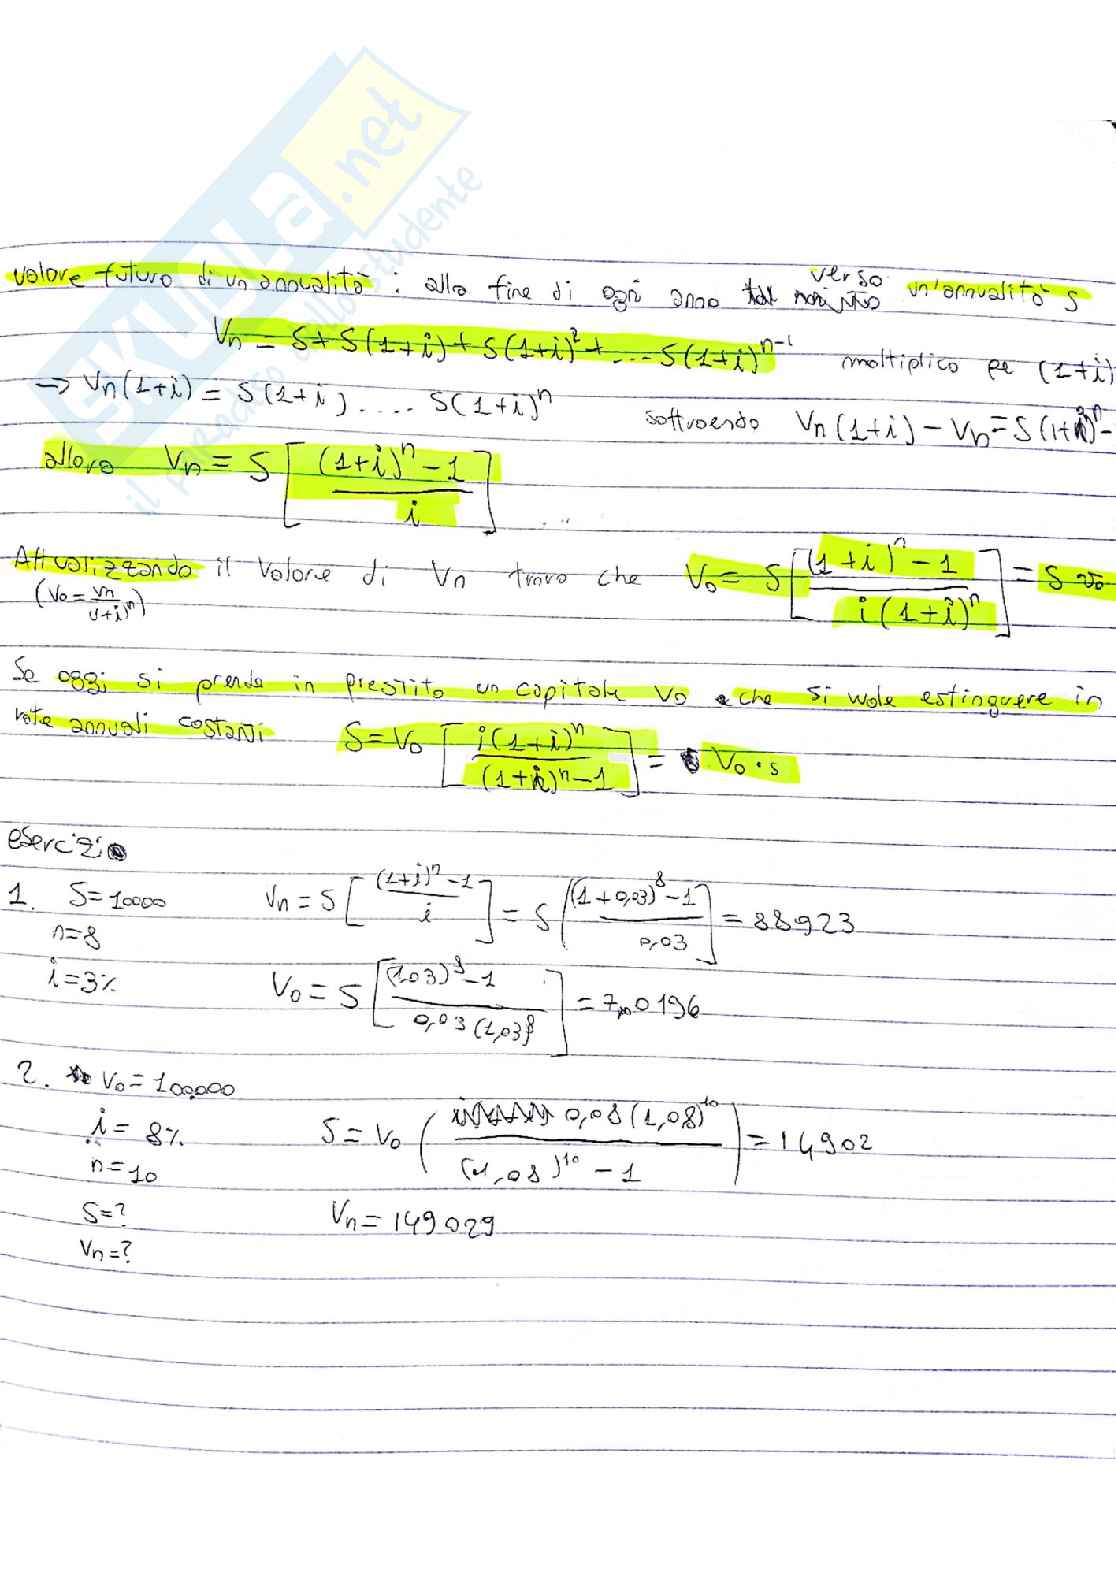 SKUOLA.net
il paradiso dello studente
valore futuro di un annualità : alla fine di ogni anno verso un'annualità S
Vn = S + S(1+i) + S(1+i)² + .... S(1+i)ⁿ⁻¹ moltiplico per (1+i)
→ Vn(1+i) = S(1+i) .... S(1+i)ⁿ sottraendo Vn(1+i) - Vn = S(1+i)ⁿ -
allora Vn = S [ (1+i)ⁿ - 1 / i ]
Attualizzando il valore di Vn trovo che V₀ = S [ (1+i)ⁿ - 1 / i(1+i)ⁿ ] = S
(V₀ = Vn / (1+i)ⁿ)
Se oggi si prende in prestito un capitale V₀ e che si vuole estinguere in
rate annuali costanti S = V₀ [ i(1+i)ⁿ / (1+i)ⁿ - 1 ] = V₀ · s
esercizi
1. S = 10000 Vn = S [ (1+i)ⁿ - 1 / i ] = S [ (1+0,03)⁸ - 1 / 0,03 ] = 88923
n = 8
i = 3% V₀ = S [ (1,03)⁸ - 1 / 0,03 (1,03)⁸ ] = 70196
2. V₀ = 100,000
i = 8% S = V₀ ( 0,08 (1,08)¹⁰ / (1,08)¹⁰ - 1 ) = 14902
n = 10
S = ? Vn = 149029
Vn = ?